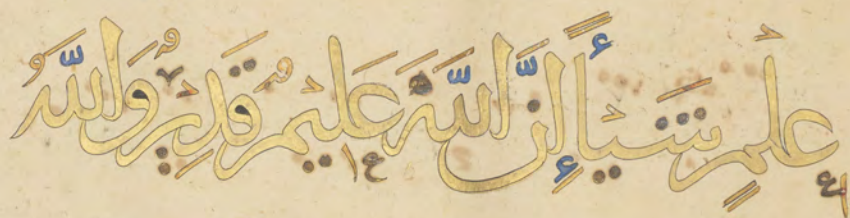 عِلْمٍ شَيْـًٔا إِنَّ اللَّهَ عَلِيمٌ قَدِيرٌ وَاللَّهُ